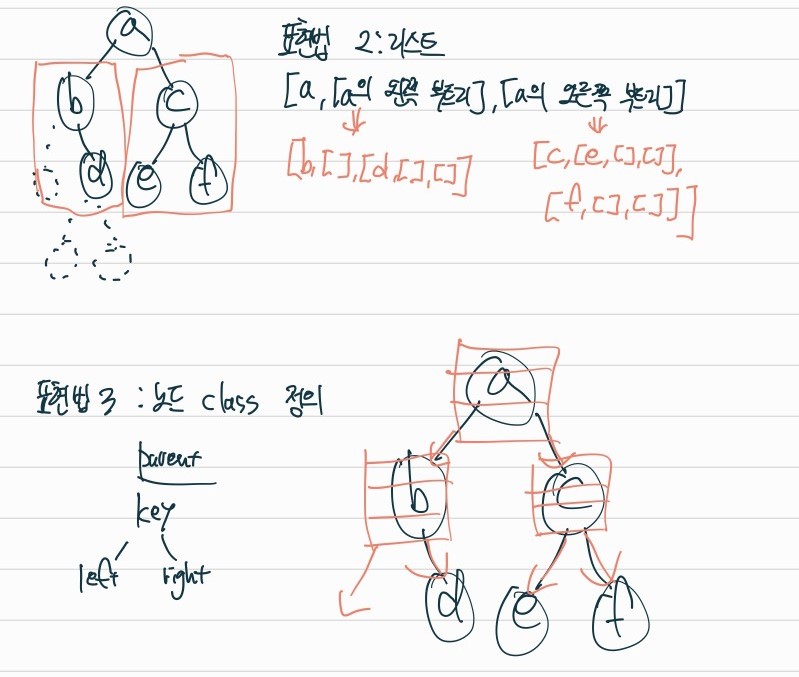 a
b c
d e f
표현법 2:리스트
[a,[a의 왼쪽 부트리],[a의 오른쪽 부트리]]
[b,[],[d,[],[]]
[c,[e,[],[]],
[f,[],[]]]
표현법 3 : 노드 class 정의
parent
key
left right
a
b c
d e f